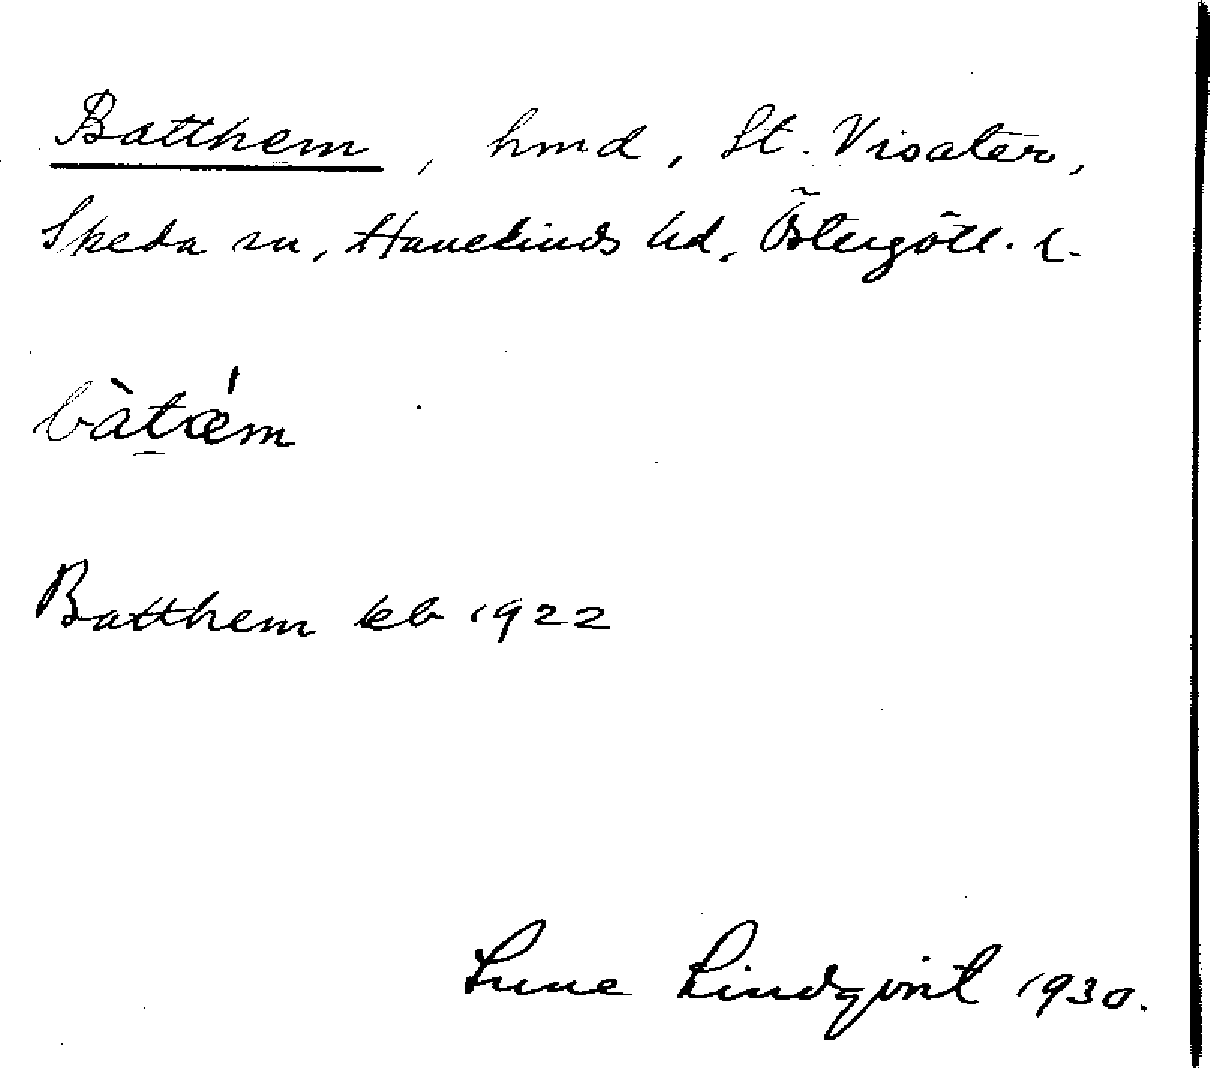 Batthem, hmd, St. Visätter,
Skeda sn, Hanekinds hd, Östergötl. l.
bàtæ̀m
Batthem kb 1922
Sune Lindqvist 1930.